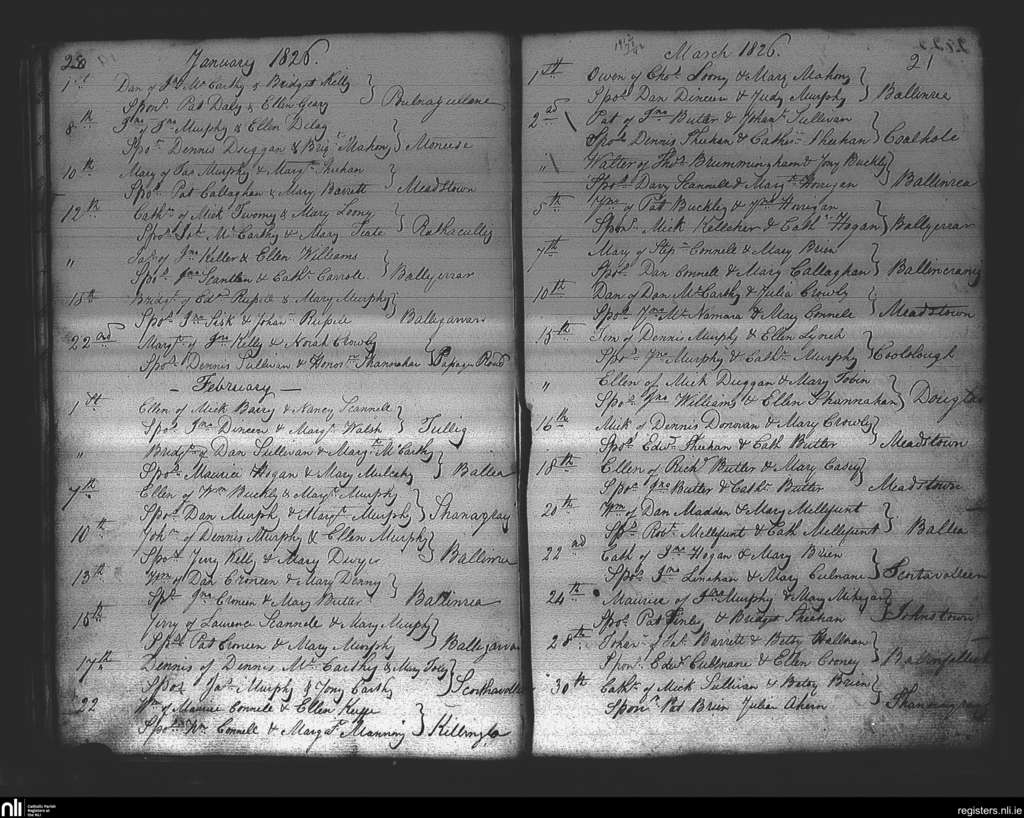 20
January 1826.
1st Dan of Jas McCarthy & Bridget Kelly
Sponrs Pat Daly & Ellen Geary } Bulnagullane
8th Jno of Jno Murphy & Ellen Delay
Spors Dennis Duggan & Brigt Mahony }
10th Mary of Jas Murphy & Margt Shehan
Spors Pat Callaghan & Mary Barrett } Meadstown
12th Cathn of Mick Twomy & Mary Loony
Spors McCarthy & Mary } Rathacullig
" of Jno Keller & Ellen Williams
Spors Jno Scanllan & Cathn Carrole } Ballygarvan
15th Bridgt of Edwd & Mary Murphy
Spors Jno Sisk & Johan } Ballygarvan
22nd Margt of Jno Kelly & Norah Crowly
Spors Dennis Sullivan & Honor Shannahan } Road
— February —
1st Ellen of Mick Barry & Nancy Scannele
Spors Jno Dineen & Margt Walsh } Tullig
" Bridgt of Dan Sullivan & Margt McCarthy
Spors Maurice Hogan & Mary Mulcahy } Ballea
7th Ellen of Wm Buckly & Margt Murphy
Spors Dan Murphy & Margt Murphy } Shanagray
10th Johan of Dennis Murphy & Ellen Murphy
Spors Jerry Kelly & Mary Dwyer } Ballinrea
13th of Dan Croneen & Mary Denny
Spors Jno Croneen & Mary Butler } Ballinrea
15th Jerry of Laurence Scannele & Mary Murphy
Spors Pat Croneen & Mary Murphy } Ballygarvan
17th Dennis of Dennis McCarthy & Mary
Spors Jas Murphy & Carthy }
22 Wm of Maurice Connele & Ellen
Spors Wm Connell & Margt Manning } Killingly
March 1826.
21
1st Owen of Chos Loony & Mary Mahony
Spors Dan Dineen & Judy Murphy } Ballinrea
2nd Pat of Jno Butler & Johan Sullivan
Spors Dennis Sheehan & Cathn Sheehan } Coolhole
" Walter of Thos Brummingham & Buckly
Spors Davy Scannele & Margt Horrigan } Ballinrea
5th of Pat Buckly & Horrigan
Sponrs Mick Kelleher & Cath Hogan } Ballygarvan
7th Mary of Step Connele & Mary Brien
Spors Dan Connele & Mary Callaghan } Ballincranig
10th Dan of Dan McCarthy & Julia Crowly
Spors McNamara & Mary Connele } Meadstown
15th Tim of Dennis Murphy & Ellen Lynch
Spors Jno Murphy & Cathn Murphy }
" Ellen of Mick Duggan & Mary Tobin
Spors Jno Williams & Ellen Shannahan } Douglas
16th Mick of Dennis Donovan & Mary Crowly
Spors Edwd Sheehan & Cath Butler } Meadstown
18th Ellen of Richd Butler & Mary Casey
Spors Jno Butler & Cathn Butler } Meadstown
20th Wm of Dan Madden & Mary Mellefunt
Spors Robt Mellefunt & Cath Mellefunt } Ballea
22nd Cath of Jno Hogan & Mary Brien
Spors Jno Linahan & Mary Culnane }
24th Maurice of Jno Murphy & Mary
Spors Pat Finly & Bridget Sheehan } Johnstown
28th Johan of Barrett & Betsy Hallnan
Sponrs Edwd Cullnane & Ellen Cooney }
30th Cathn of Mick Sullivan & Betsy Brien
Sponrs Pat Brien Julian Ahern }
nli
Catholic Parish
Registers at
the NLI
registers.nli.ie